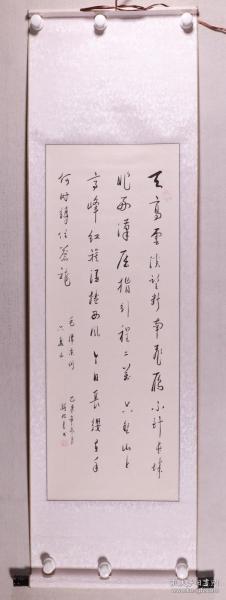 天高雲淡望斷南飛雁不到長城
非好漢屈指行程二萬六盤山上
高峰紅旗漫捲西風今日長纓在手
何時縛住蒼龍
毛澤東詞
六盤山